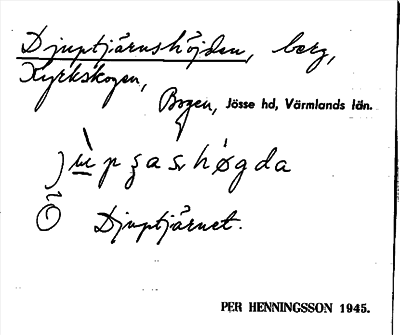 Djuptjärnshöjden, berg,
Kyrkskogen,
Bogen, Jösse hd, Värmlands län.
Ö Djuptjärnet.
PER HENNINGSSON 1945.